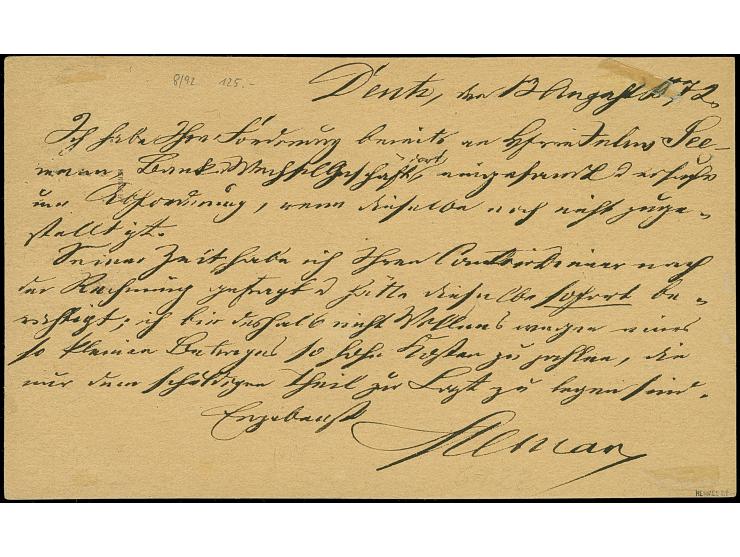 8/92 125.-
Deutz, den 13 August 1872.
Ich habe Ihre Forderung bereits an Herrn Julius See-
mann, Bank & Wechsel Geschäft dort eingesandt & ersuche
um Abforderung, wenn dieselbe noch nicht zuge-
stellt ist.
Seiner Zeit habe ich Ihren Comtoirdiener nach
der Rechnung gefragt & hätte dieselbe sofort be-
richtigt; ich bin deshalb nicht Willens wegen eines
so kleinen Betrages so hohe Kosten zu zahlen, die
nur dem schuldigen Theil zur Last zu legen sind.
Ergebenst